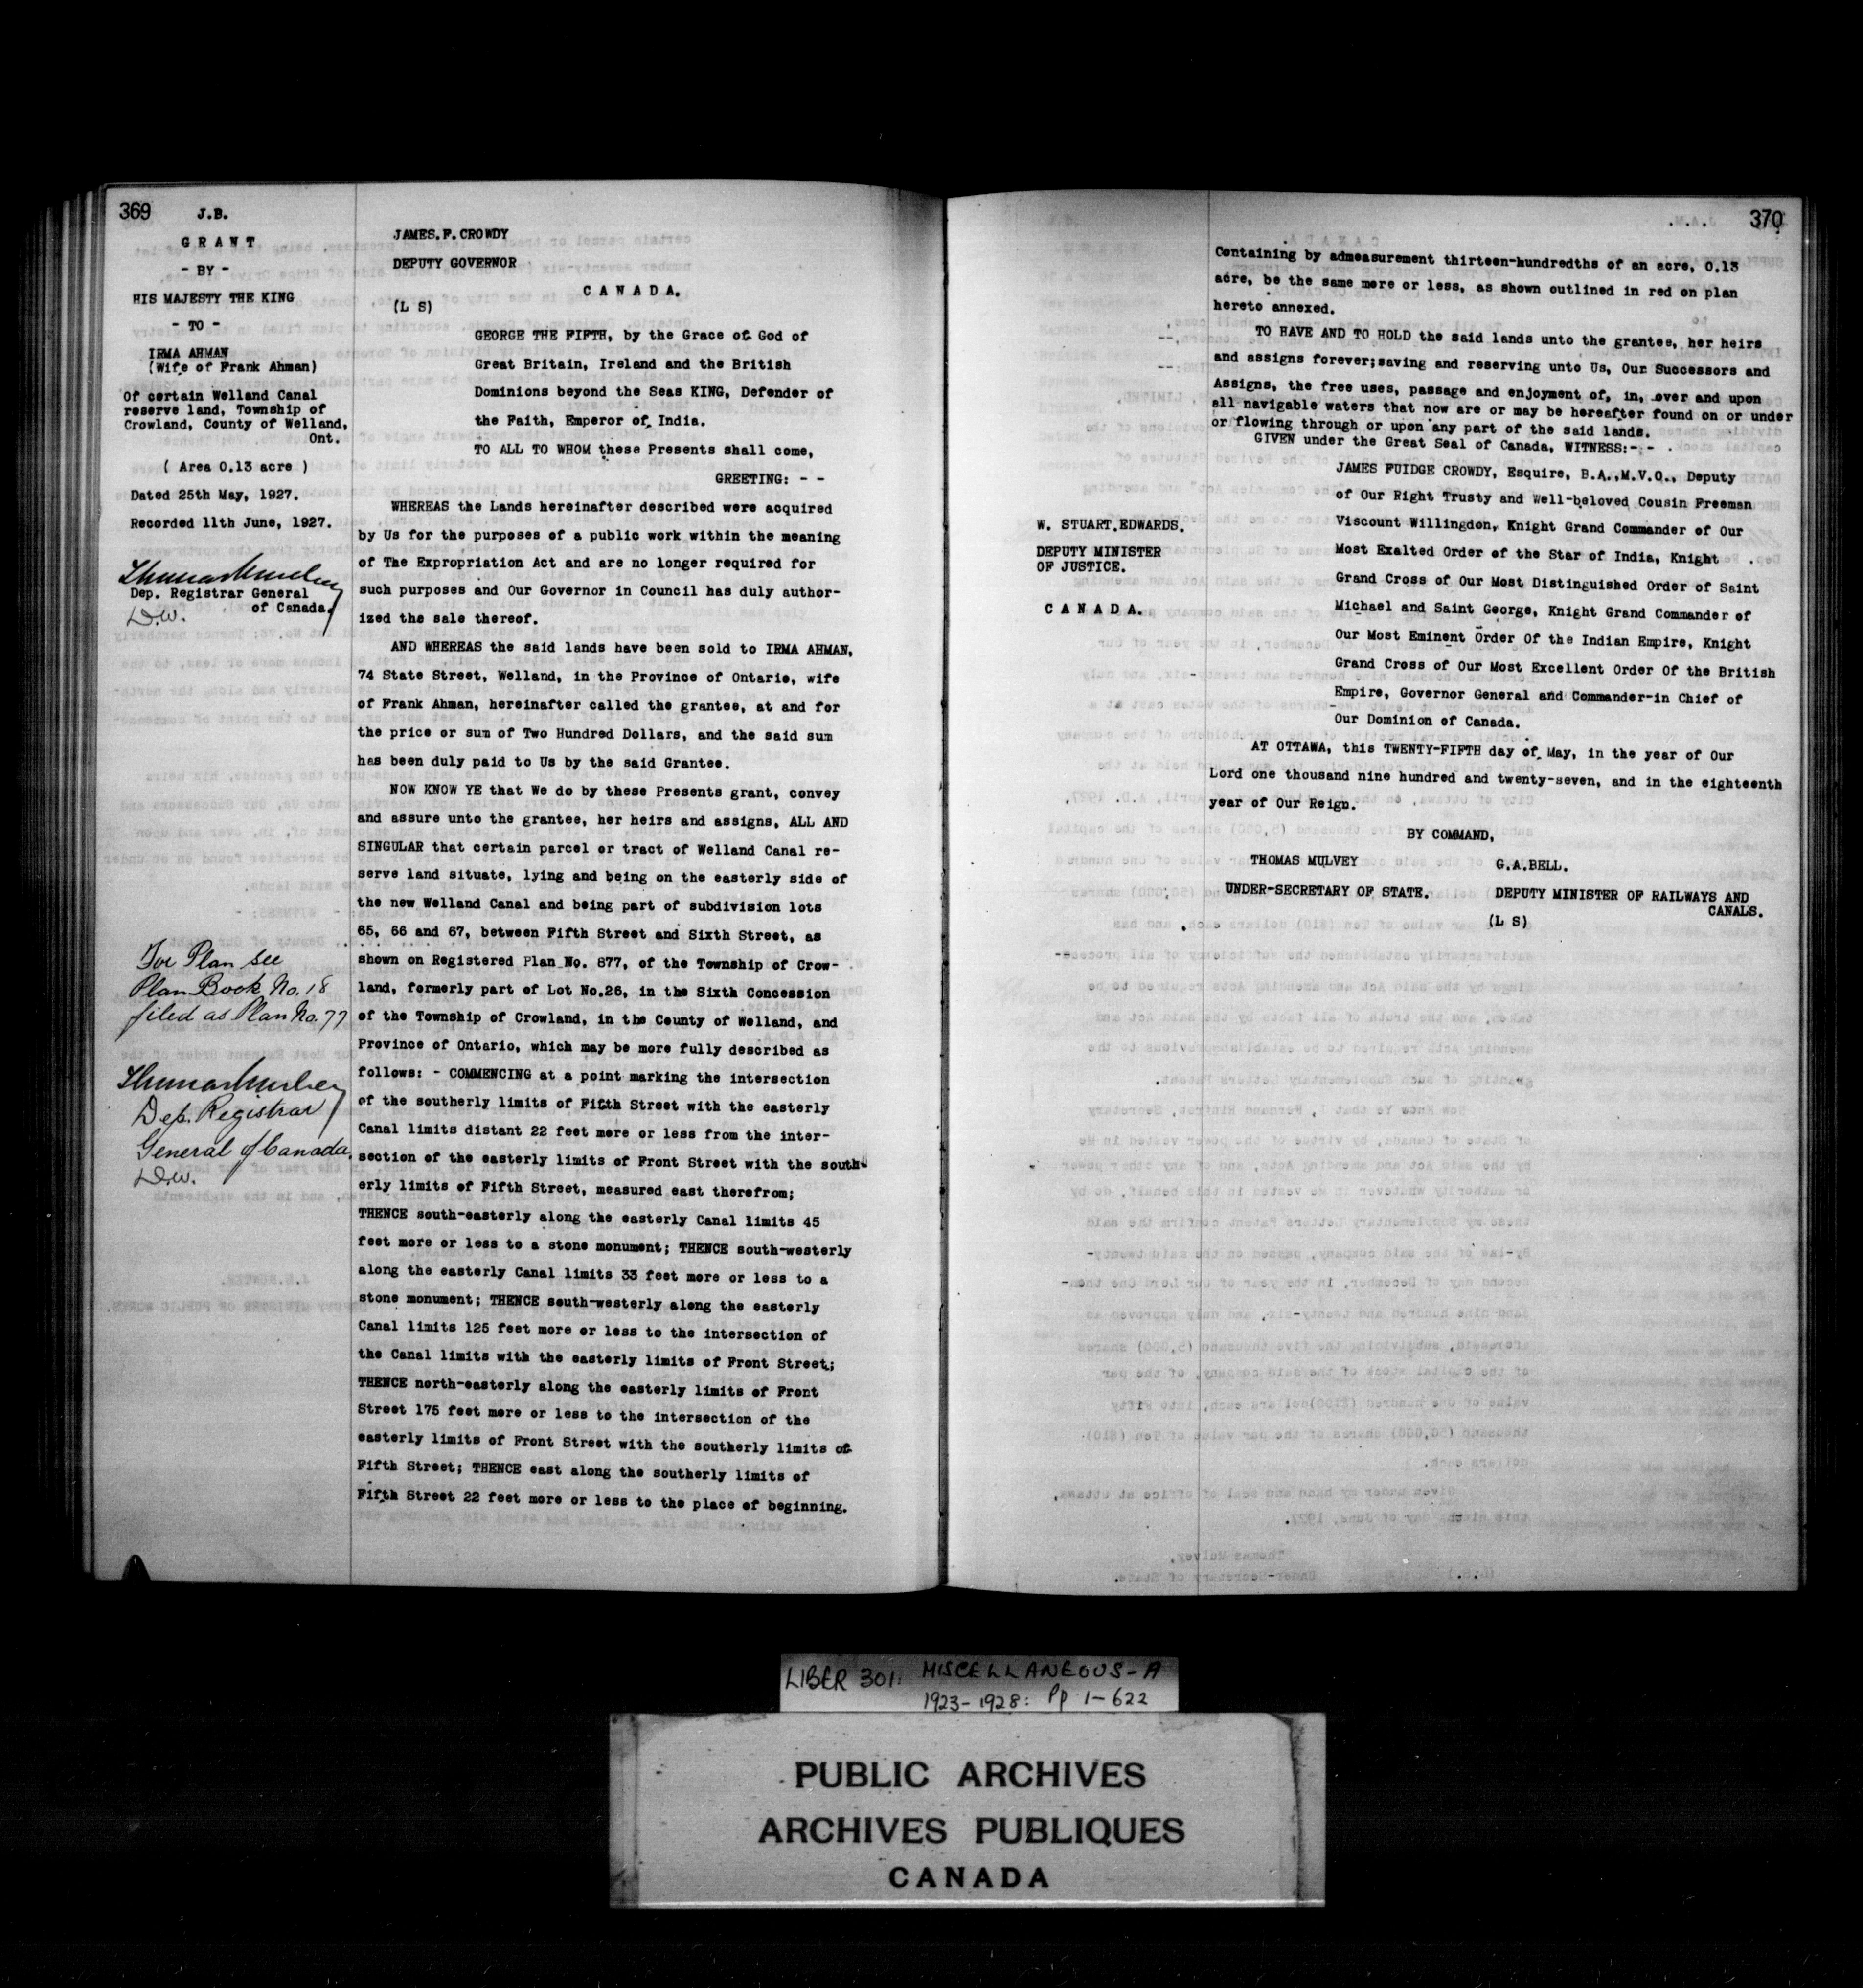 369
J.B.
G R A N T
- BY -
HIS MAJESTY THE KING
- TO -
IRMA AHMAN
(Wife of Frank Ahman)
Of certain Welland Canal
reserve land, Township of
Crowland, County of Welland,
Ont.
( Area 0.13 acre )
Dated 25th May, 1927.
Recorded 11th June, 1927.
Thomas Mulvey
Dep. Registrar General
of Canada.
D.W.
For Plan see
Plan Book No. 18
filed as Plan No. 77
Thomas Mulvey
Dep. Registrar
General of Canada.
D.W.
JAMES.F.CROWDY
DEPUTY GOVERNOR
C A N A D A.
(L S)
GEORGE THE FIFTH, by the Grace of God of
Great Britain, Ireland and the British
Dominions beyond the Seas KING, Defender of
the Faith, Emperor of India.
TO ALL TO WHOM these Presents shall come,
GREETING: - -
WHEREAS the Lands hereinafter described were acquired
by Us for the purposes of a public work within the meaning
of The Expropriation Act and are no longer required for
such purposes and Our Governor in Council has duly author-
ized the sale thereof.
AND WHEREAS the said lands have been sold to IRMA AHMAN,
74 State Street, Welland, in the Province of Ontario, wife
of Frank Ahman, hereinafter called the grantee, at and for
the price or sum of Two Hundred Dollars, and the said sum
has been duly paid to Us by the said Grantee.
NOW KNOW YE that We do by these Presents grant, convey
and assure unto the grantee, her heirs and assigns, ALL AND
SINGULAR that certain parcel or tract of Welland Canal re-
serve land situate, lying and being on the easterly side of
the new Welland Canal and being part of subdivision lots
65, 66 and 67, between Fifth Street and Sixth Street, as
shown on Registered Plan No. 877, of the Township of Crow-
land, formerly part of Lot No.26, in the Sixth Concession
of the Township of Crowland, in the County of Welland, and
Province of Ontario, which may be more fully described as
follows: - COMMENCING at a point marking the intersection
of the southerly limits of Fifth Street with the easterly
Canal limits distant 22 feet more or less from the inter-
section of the easterly limits of Front Street with the south-
erly limits of Fifth Street, measured east therefrom;
THENCE south-easterly along the easterly Canal limits 45
feet more or less to a stone monument; THENCE south-westerly
along the easterly Canal limits 33 feet more or less to a
stone monument; THENCE south-westerly along the easterly
Canal limits 125 feet more or less to the intersection of
the Canal limits with the easterly limits of Front Street;
THENCE north-easterly along the easterly limits of Front
Street 175 feet more or less to the intersection of the
easterly limits of Front Street with the southerly limits of
Fifth Street; THENCE east along the southerly limits of
Fifth Street 22 feet more or less to the place of beginning.
370
Containing by admeasurement thirteen-hundredths of an acre, 0.13
acre, be the same more or less, as shown outlined in red on plan
hereto annexed.
TO HAVE AND TO HOLD the said lands unto the grantee, her heirs
and assigns forever;saving and reserving unto Us, Our Successors and
Assigns, the free uses, passage and enjoyment of, in, over and upon
all navigable waters that now are or may be hereafter found on or under
or flowing through or upon any part of the said lands.
GIVEN under the Great Seal of Canada, WITNESS:- -
JAMES FUIDGE CROWDY, Esquire, B.A.,M.V.O., Deputy
of Our Right Trusty and Well-beloved Cousin Freeman
Viscount Willingdon, Knight Grand Commander of Our
Most Exalted Order of the Star of India, Knight
Grand Cross of Our Most Distinguished Order of Saint
Michael and Saint George, Knight Grand Commander of
Our Most Eminent Order Of the Indian Empire, Knight
Grand Cross of Our Most Excellent Order Of the British
Empire, Governor General and Commander-in Chief of
Our Dominion of Canada.
W. STUART.EDWARDS.
DEPUTY MINISTER
OF JUSTICE.
C A N A D A.
AT OTTAWA, this TWENTY-FIFTH day of May, in the year of Our
Lord one thousand nine hundred and twenty-seven, and in the eighteenth
year of Our Reign.
BY COMMAND,
THOMAS MULVEY
UNDER-SECRETARY OF STATE.
G.A.BELL.
DEPUTY MINISTER OF RAILWAYS AND
CANALS.
(L S)
LIBER 301: MISCELLANEOUS-A
1923-1928: Pp 1-622
PUBLIC ARCHIVES
ARCHIVES PUBLIQUES
CANADA